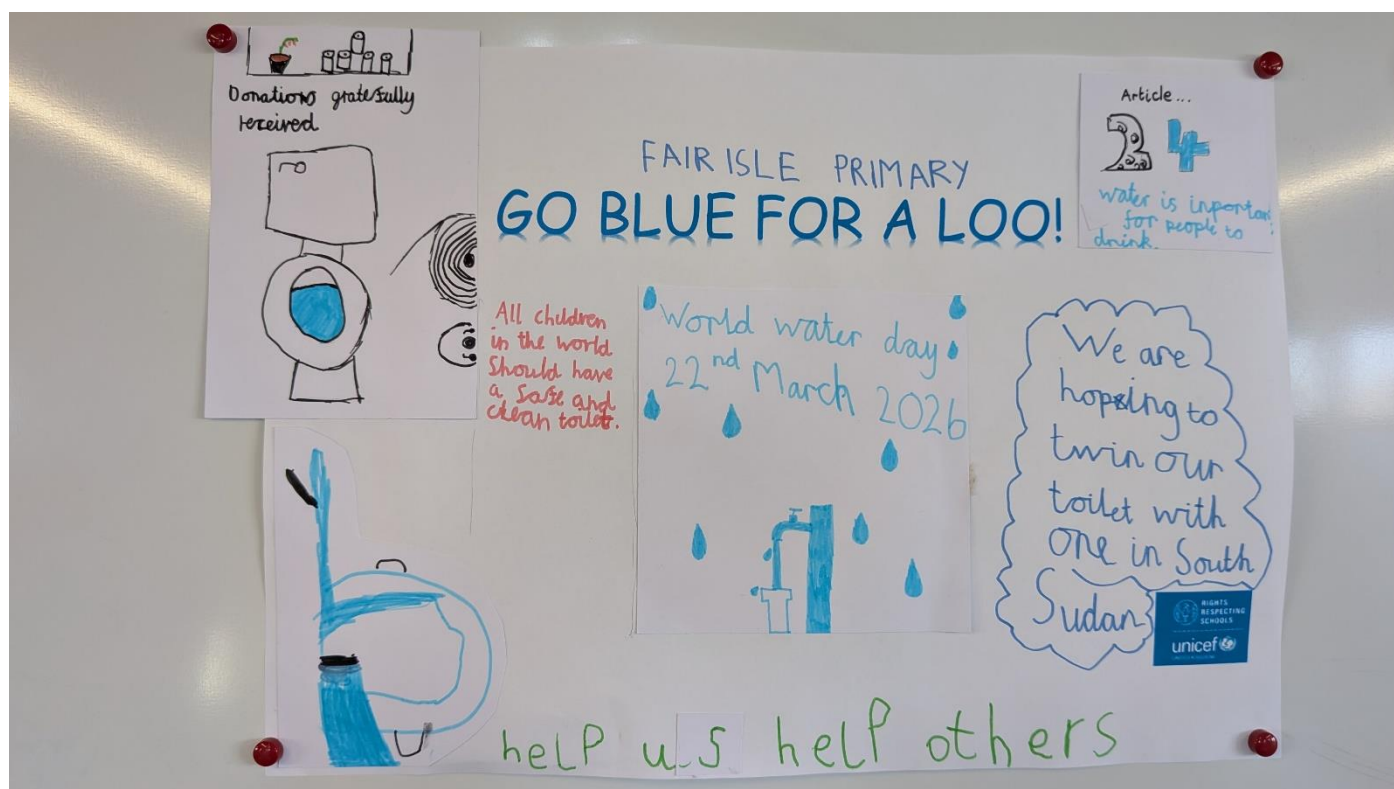 Donations gratefully
received
FAIR ISLE PRIMARY
GO BLUE FOR A LOO!
Article...
24
water is inportant
for people to
drink.
All children
in the world
Should have
a safe and
clean toilet.
World water day
22nd March 2026
We are
hoping to
twin our
toilet with
one in South
Sudan
RIGHTS
RESPECTING
SCHOOLS
unicef
help us help others